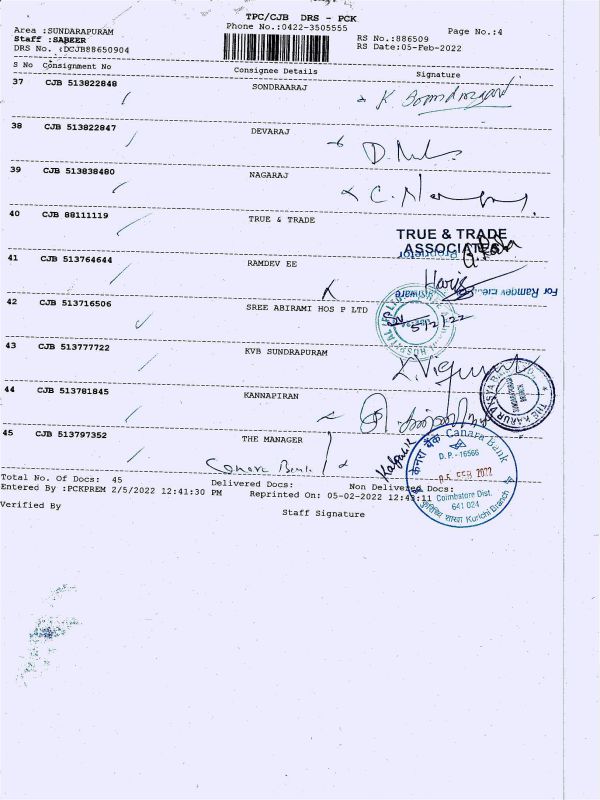 TPC/CJB DRS - PCK
Area :SUNDARAPURAM Phone No.:0422-3505555 Page No.:4
Staff :SABEER RS No.:886509
DRS No. :DCJB88650904 RS Date:05-Feb-2022
S No Consignment No Consignee Details Signature
37 CJB 513822848 SONDRAARAJ
38 CJB 513822847 DEVARAJ
39 CJB 513838480 NAGARAJ
40 CJB 88111119 TRUE & TRADE
TRUE & TRADE
ASSOCIATES
Proprietor
41 CJB 513764644 RAMDEV EE
For Ramdev
42 CJB 513716506 SREE ABIRAMI HOS P LTD
5/2/22
43 CJB 513777722 KVB SUNDRAPURAM
44 CJB 513781845 KANNAPIRAN
45 CJB 513797352 THE MANAGER
Canara Bank
केनरा बैंक Canara Bank
D.P.-16566
05 FEB 2022
Coimbatore Dist.
641 024
Kurichi Branch
Total No. Of Docs: 45 Delivered Docs: Non Delivered Docs:
Entered By :PCKPREM 2/5/2022 12:41:30 PM Reprinted On: 05-02-2022
Verified By Staff Signature